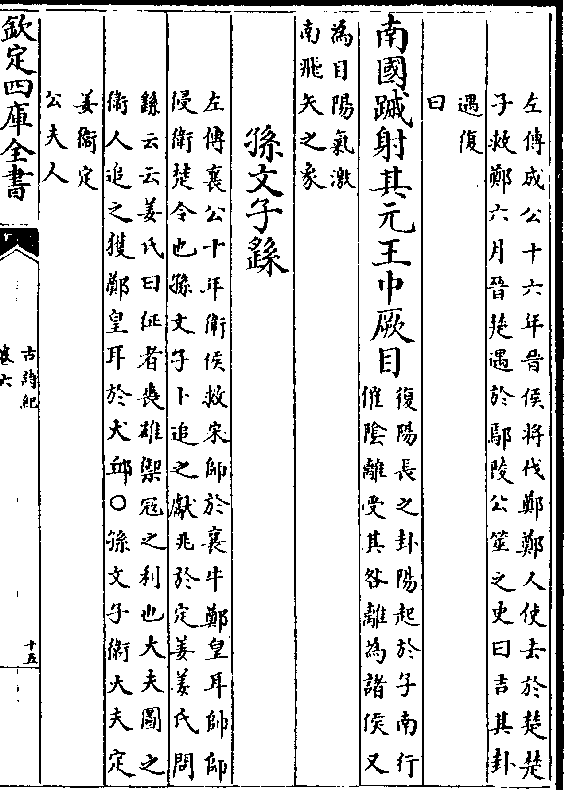 左傳成公十六年晉侯將伐鄭鄭人使告於楚楚
子救鄭六月晉楚遇於鄢陵公筮之史曰吉其卦
遇復
曰
南國䠞射其元王中厥目
復陽長之卦陽起於子南行
催陰離受其咎離為諸侯又
為目陽氣激
南飛矢之象
孫文子繇
左傳襄公十年衛侯救宋師於襄牛鄭皇耳帥師
侵衛楚令也孫文子卜追之獻兆於定姜姜氏問
繇云云姜氏曰征者喪雄禦冦之利也大夫圖之
衛人追之獲鄭皇耳於犬邱○孫文子衛大夫定
姜衛定
公夫人
欽定四庫全書
古詩紀
卷六
十五